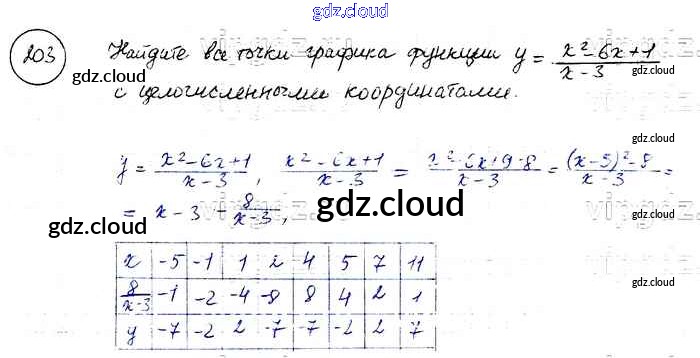 gdz.cloud
203 Найдите все точки графика функции y = (x²-6x+1)/(x-3)
gdz.cloud
gdz.cloud
с целочисленными координатами.
gdz.cloud
y = (x²-6x+1)/(x-3), (x²-6x+1)/(x-3) = (x²-6x+9-8)/(x-3) = ((x-3)²-8)/(x-3) =
gdz.cloud
= x-3 - 8/(x-3),
gdz.cloud
gdz.cloud
gdz.cloud
x -5 -1 1 2 4 5 7 11
8/(x-3) -1 -2 -4 -8 8 4 2 1
y -7 -2 2 7 -7 -2 2 7
gdz.cloud
gdz.cloud